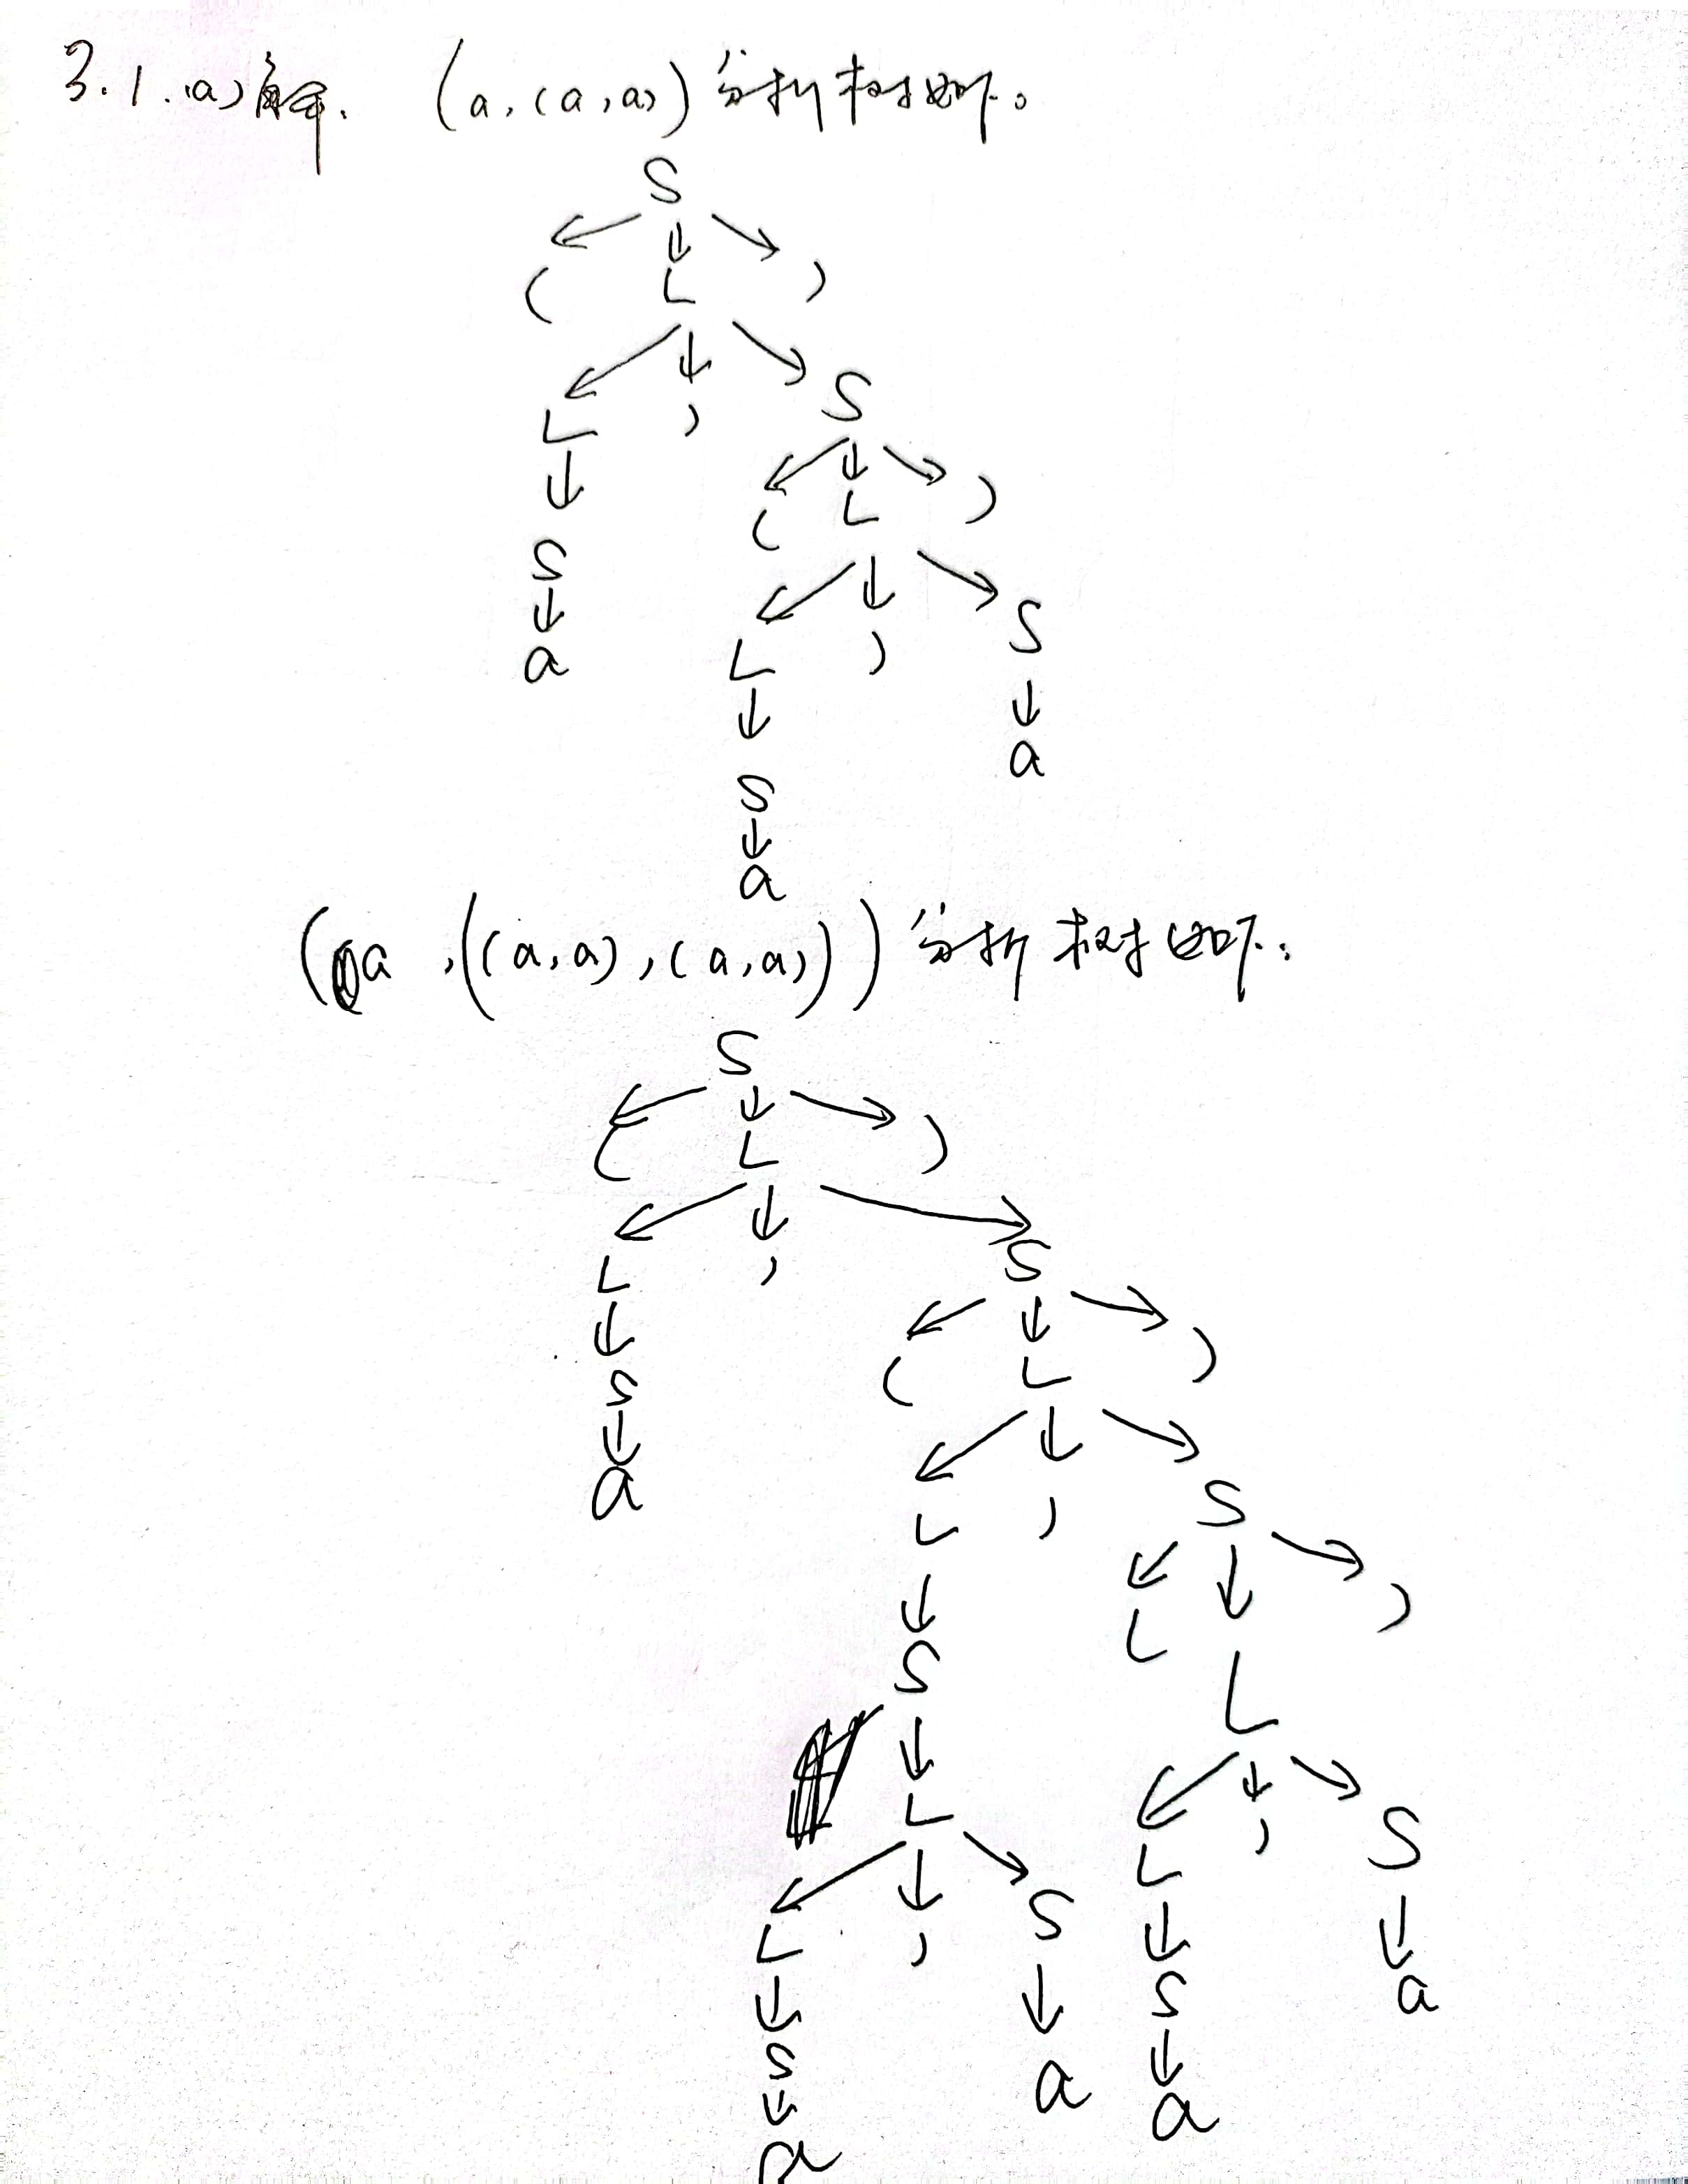 3.1.(a)解. (a,(a,a))分析树如下。
S
( L )
L , S
( L )
S
L , S
a
a
S
a
(a,((a,a),(a,a)))分析树如下:
S
( L )
L , S
( L )
S
a
L , S
S
L L )
L , S
L , S
L
S
a
a
S
a
S
a